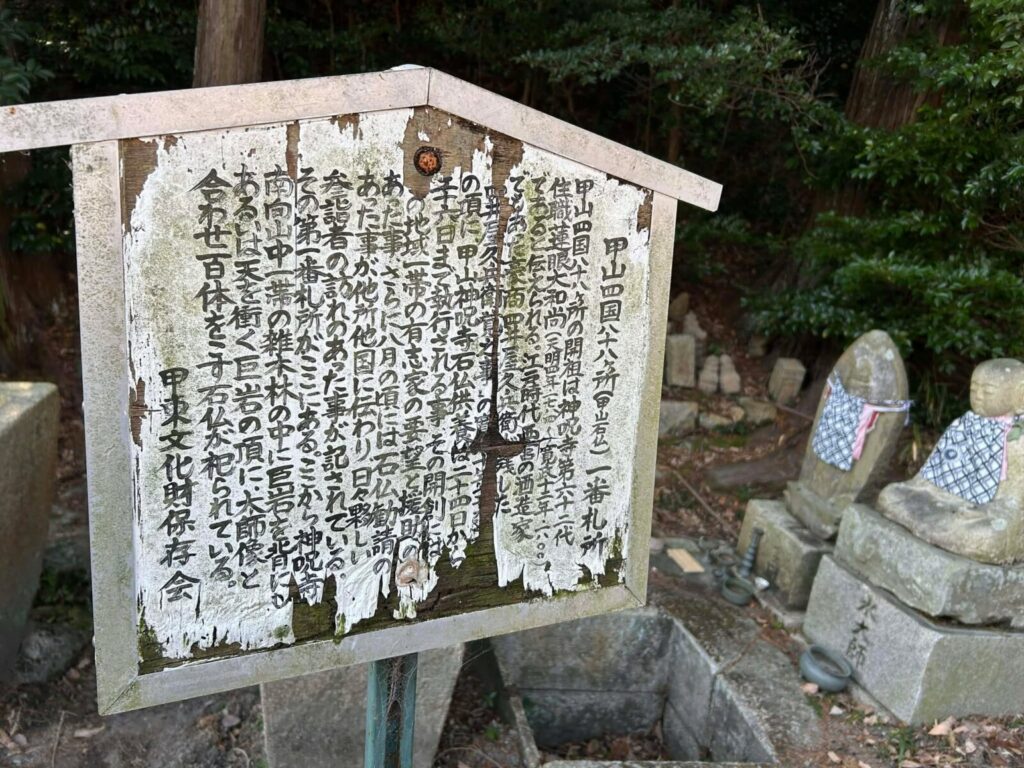 甲山四国八十八ヶ所(甲山石仏)一番札所
甲山四国八十八ヶ所の開祖は神呪寺第六十一代
住職蓮眼大和尚(天明四年~寛政十二年
であると伝えられる。江戸時代西宮の酒造家
であった豪商四井屋久兵衛 残した
四井屋久兵衛
の頃に甲山神呪寺石仏供養は二十四日か
廿六日まで執行される事、その開創に
の地域一帯の有志家の要望と援助の
あった事、さらに八月の頃には石仏勧請の
あった事が他所他国に伝わり、日々夥しい
参詣者の訪れのあった事が記されている。
その第一番札所がここにある。ここから神呪寺
南向山中一帯の雑木林の中に巨岩を背に
あるいは天を衝く巨岩の頂に大師像と
合わせ百体をこす石仏が祀られている。
甲東文化財保存会
水大師